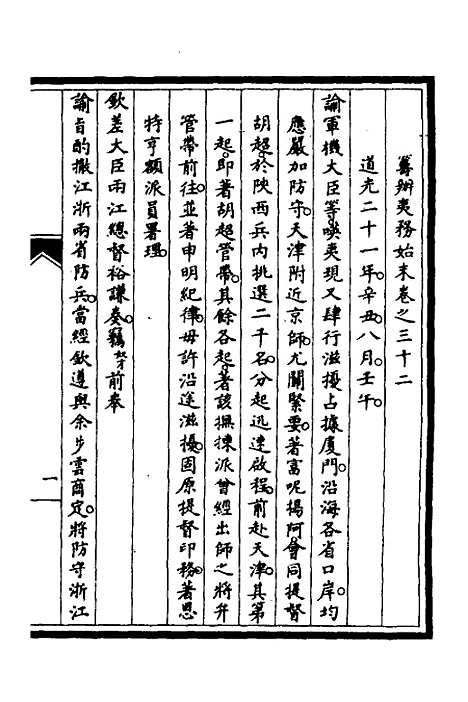 籌辦夷務始末卷之三十二
道光二十一年。辛丑。八月。壬午。
諭軍機大臣等。㗸夷現又肆行滋擾。占據廈門。沿海各省口岸。均
應嚴加防守。天津附近京師。尤關緊要。著富呢揚阿。會同提督
胡超。於陝西兵內挑選二千名。分起迅速啟程。前赴天津。其第
一起。即著胡超管帶。其餘各起。著該撫揀派曾經出師之將弁
管帶前往。並著申明紀律。毋許沿途滋擾。固原提督印務。著恩
特亨額派員署理。
欽差大臣兩江總督裕謙奏。竊奴才前奉
諭旨。酌撤江浙兩省防兵。當經欽遵。與余步雲商定。將防守浙江
一